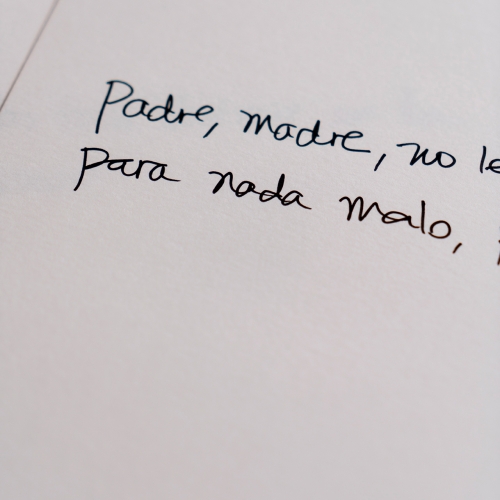 Padre, madre, no le
Para nada malo,